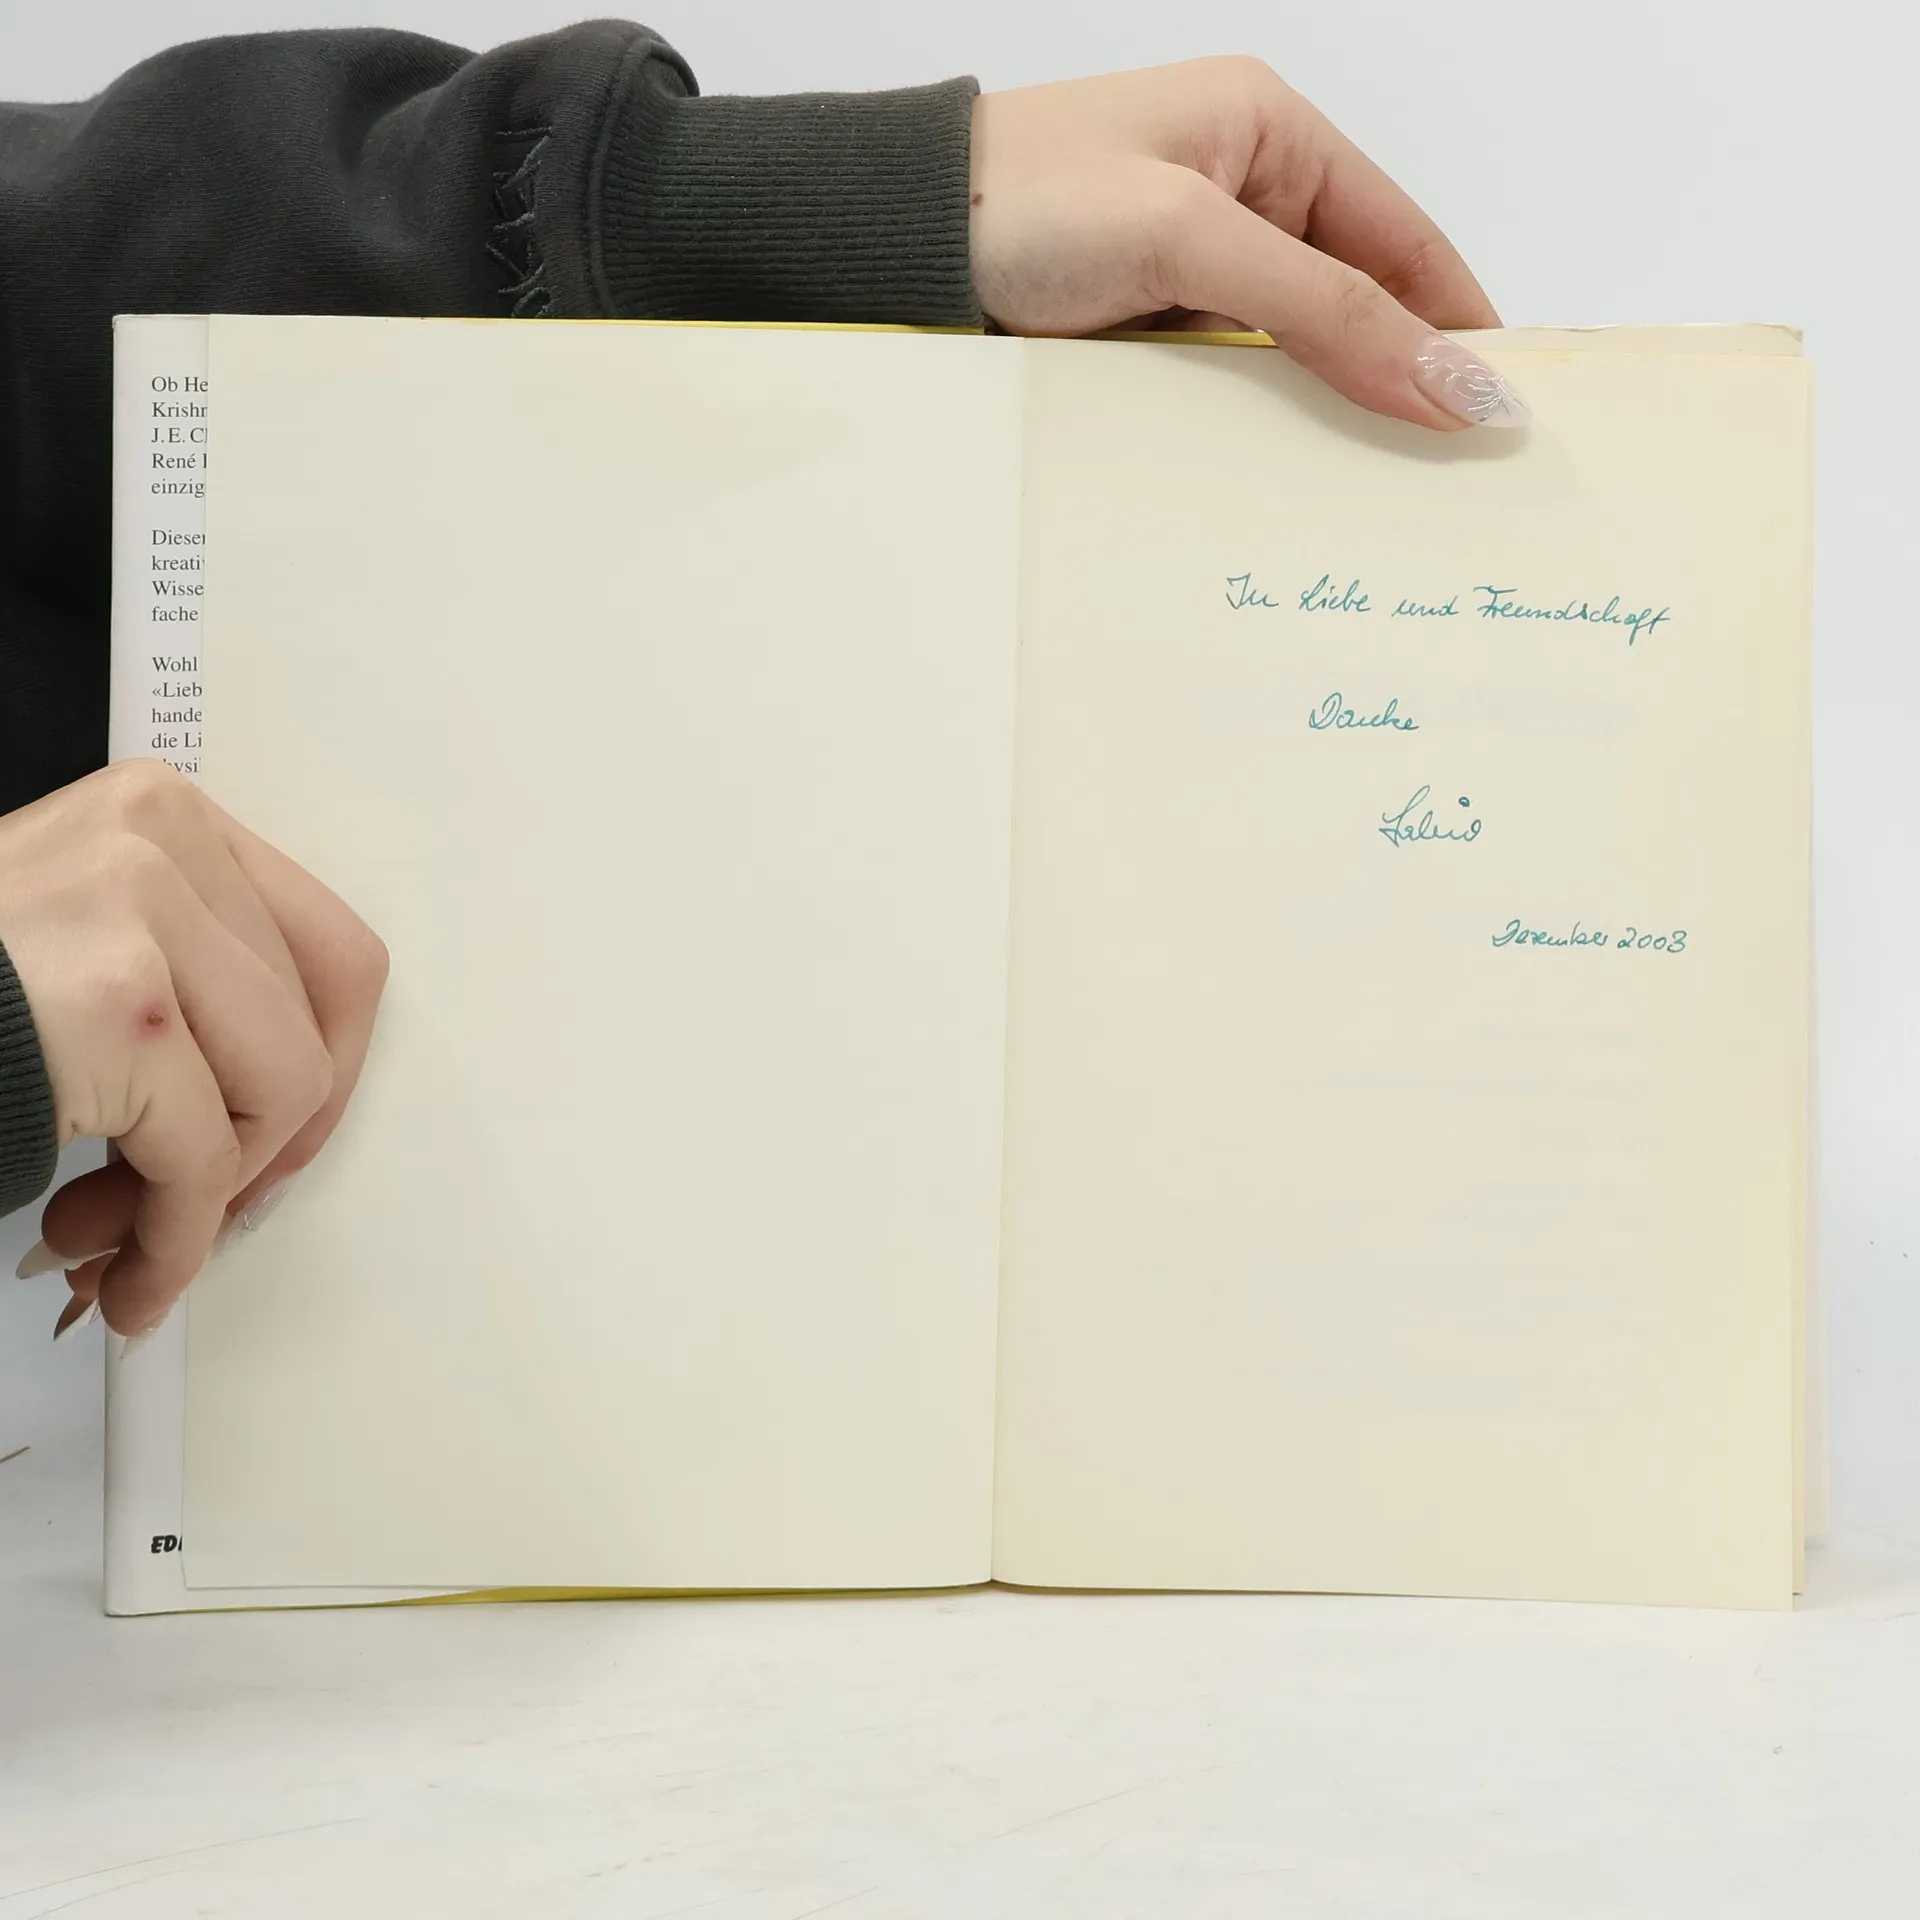 Ob He
Krishn
J.E. C
René
einzig
Dieser
kreati
Wisse
fache
Wohl
«Lieb
hande
die Li
physi
ED
In Liebe und Freundschaft
Danke
Dezember 2003